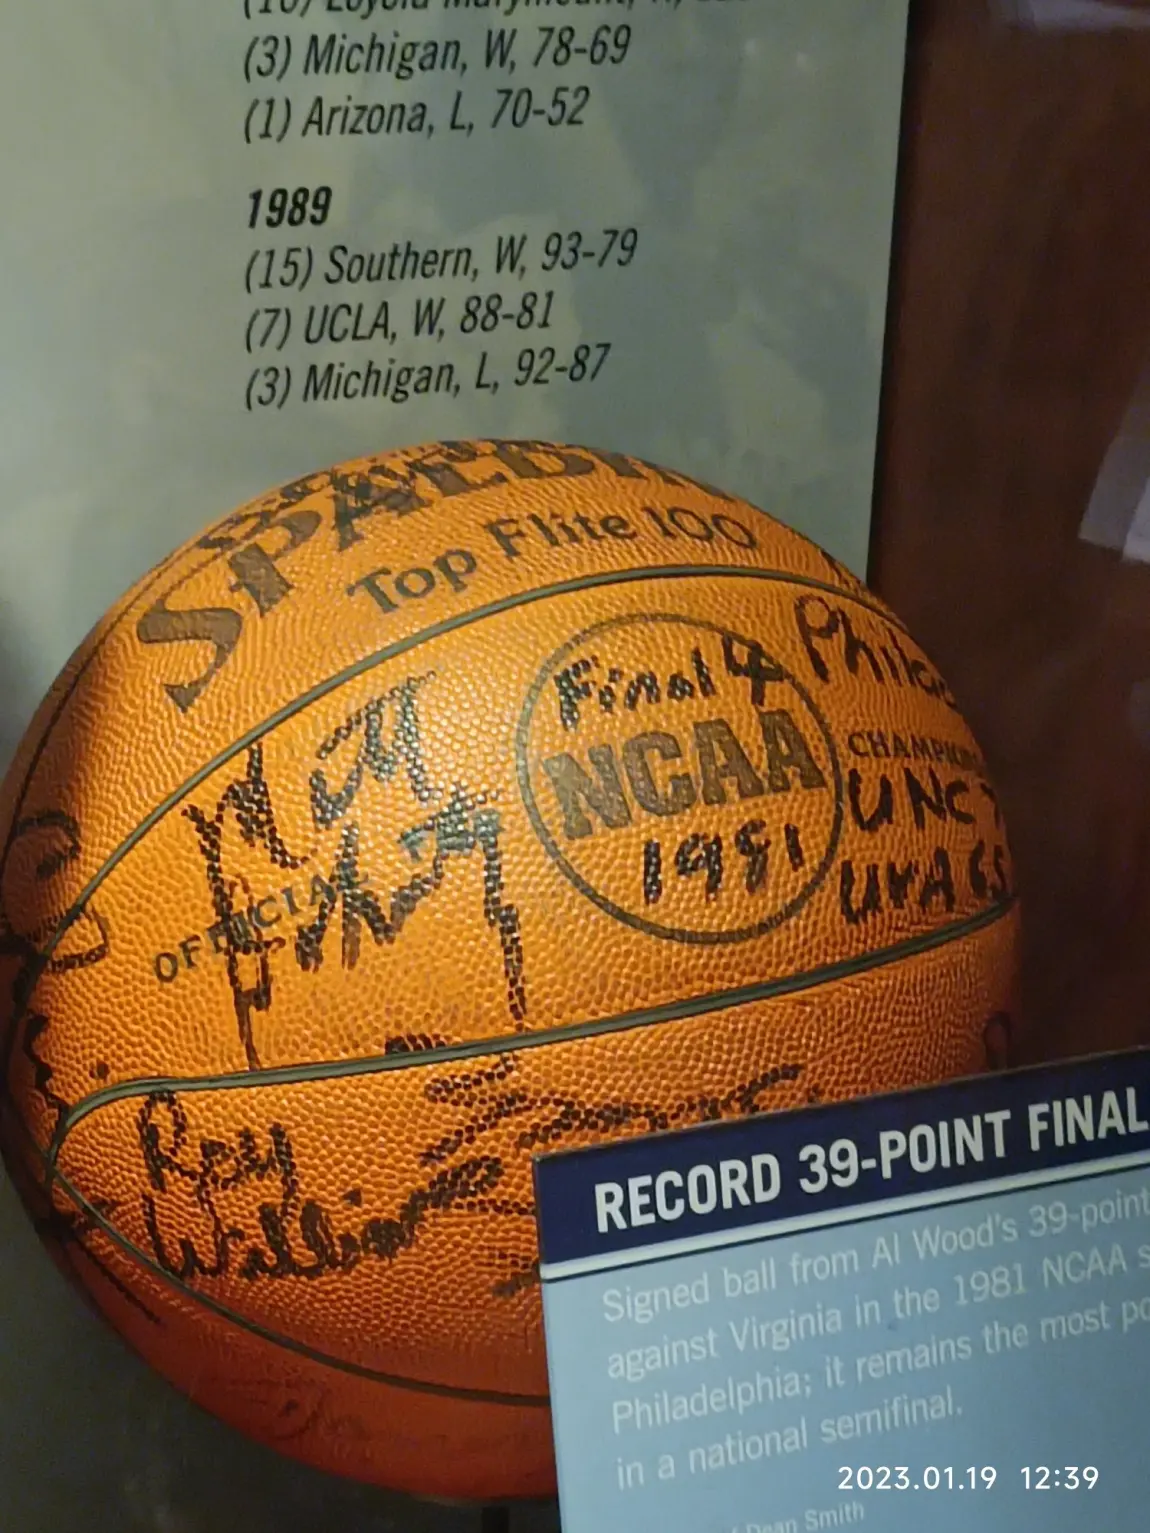 (3) Michigan, W, 78-69
(1) Arizona, L, 70-52
1989
(15) Southern, W, 93-79
(7) UCLA, W, 88-81
(3) Michigan, L, 92-87
SPALDIN
Top Flite 100
Final 4
NCAA
1981
Phila
CHAMPION
UNC 7
UVA 65
OFFICIAL
Roy
Williams
RECORD 39-POINT FINAL
Signed ball from Al Wood's 39-point
against Virginia in the 1981 NCAA s
Philadelphia; it remains the most po
in a national semifinal.
Dean Smith
2023.01.19 12:39